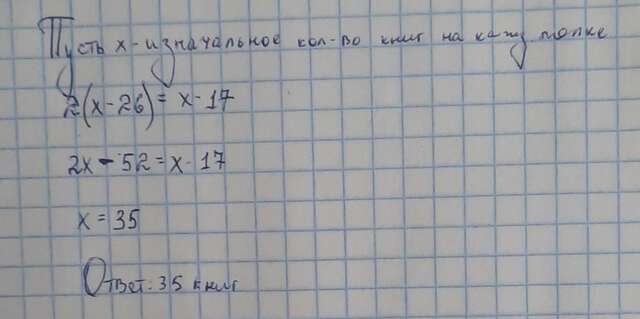 Пусть х - изначальное кол-во книг на кажд полке
2(x-26)= x-17
2x-52=x-17
x=35
Ответ: 35 книг